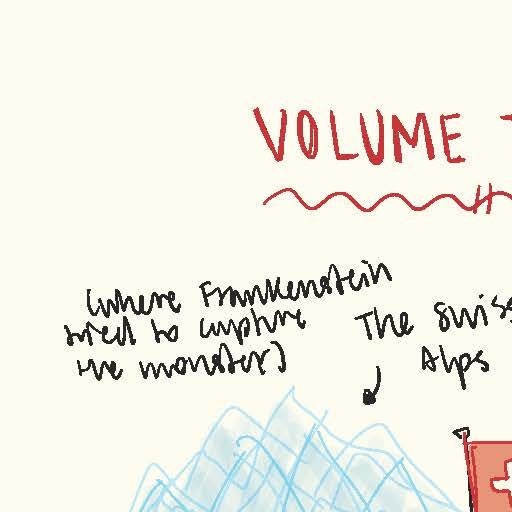 VOLUME
(where Frankenstein
tried to capture
the monster)
The Swiss
Alps